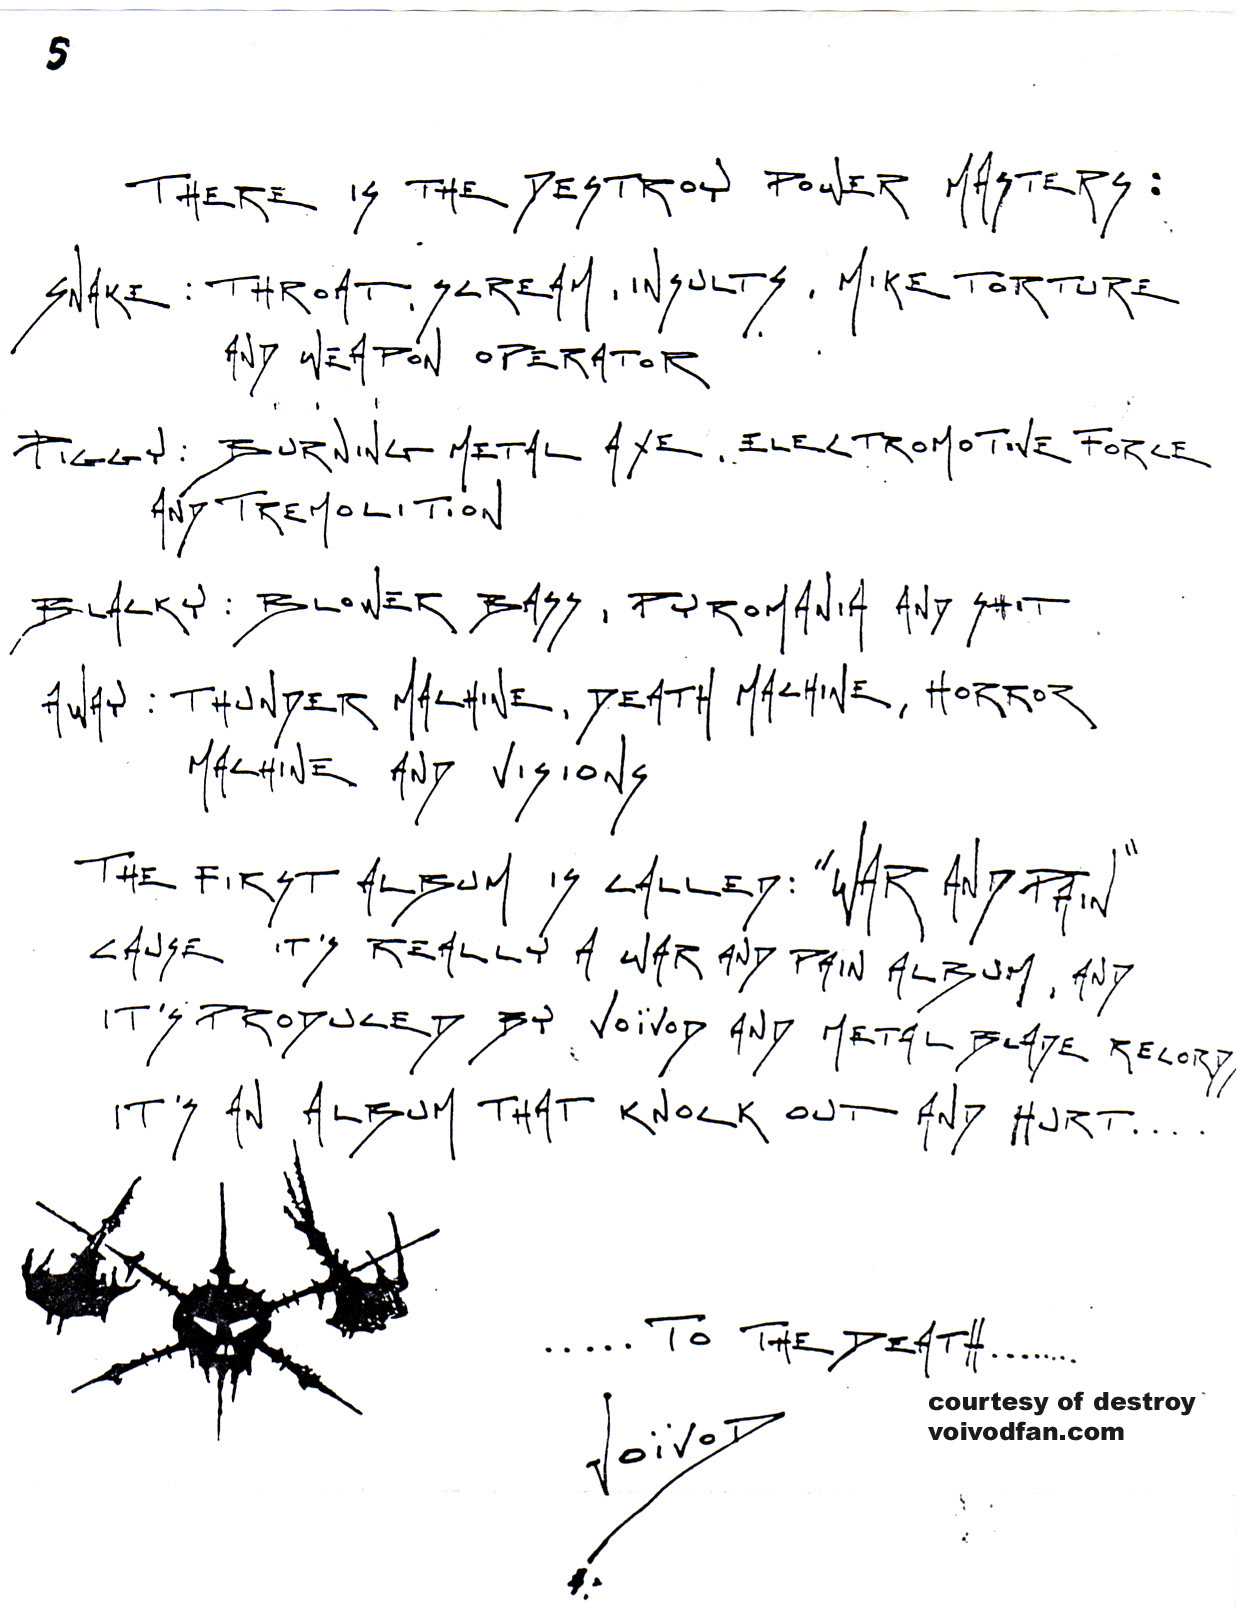 5
THERE IS THE DESTROY POWER MASTERS:
SNAKE: THROAT, SCREAM, INSULTS, MIKE TORTURE
AND WEAPON OPERATOR
PIGGY: BURNING METAL AXE, ELECTROMOTIVE FORCE
AND TREMOLITION
BLACKY: BLOWER BASS, PYROMANIA AND SHIT
AWAY: THUNDER MACHINE, DEATH MACHINE, HORROR
MACHINE AND VISIONS
THE FIRST ALBUM IS CALLED: "WAR AND PAIN"
CAUSE IT'S REALLY A WAR AND PAIN ALBUM, AND
IT'S PRODUCED BY VOÏVOD AND METAL BLADE RECORD,
IT'S AN ALBUM THAT KNOCK OUT AND HURT....
.....TO THE DEATH........
VOÏVOD
courtesy of destroy
voivodfan.com